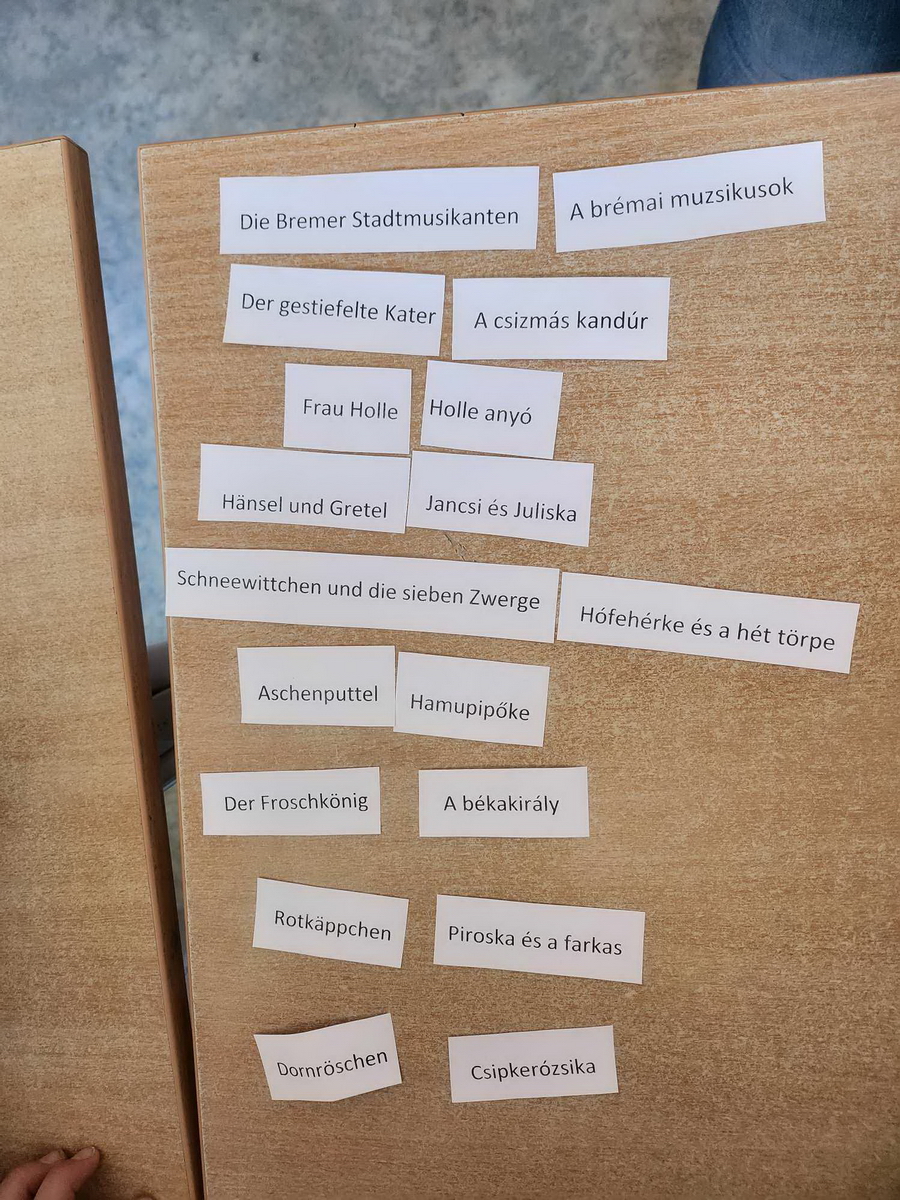 Die Bremer Stadtmusikanten A brémai muzsikusok
Der gestiefelte Kater A csizmás kandúr
Frau Holle Holle anyó
Hänsel und Gretel Jancsi és Juliska
Schneewittchen und die sieben Zwerge Hófehérke és a hét törpe
Aschenputtel Hamupipőke
Der Froschkönig A békakirály
Rotkäppchen Piroska és a farkas
Dornröschen Csipkerózsika